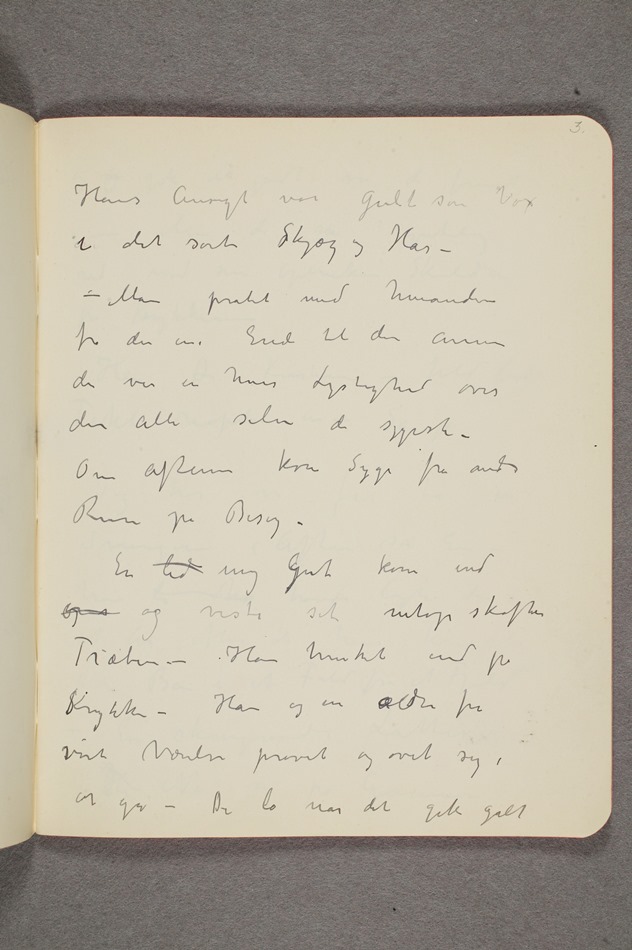 3.
Hans Ansigt var gult som Vox
i det sorte Skjæg og Hår –
– Man pratet med hinanden
fra den ene Ende til den annen
der var en hvis Lystighed over
dem alle selv de sygeste –
Om aftenen kom Syge fra andre
Rum på Besøg –
En lid ung Gut kom ind
og s og viste sit netop skaftede
Træben – Han hinket ind på
Krykker – Han og en ældre fra
vårt Værelse prøvet og øvet sig i
at gå – De lo når det gik galt